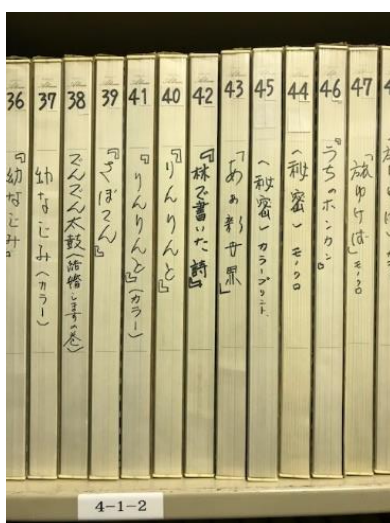 36
『幼なじみ』
37
幼なじみ(カラー)
38
でんでん太鼓(結婚しますの巻)
39
『さぼてん』
41
『りんりんと』(カラー)
40
『りんりんと』
42
『林で書いた詩』
43
「ああ新世界」
45
(秘密)カラープリント
44
(秘密)モノクロ
46
『うちのホンカン』
47
『旅ゆけば』モノクロ
4-1-2